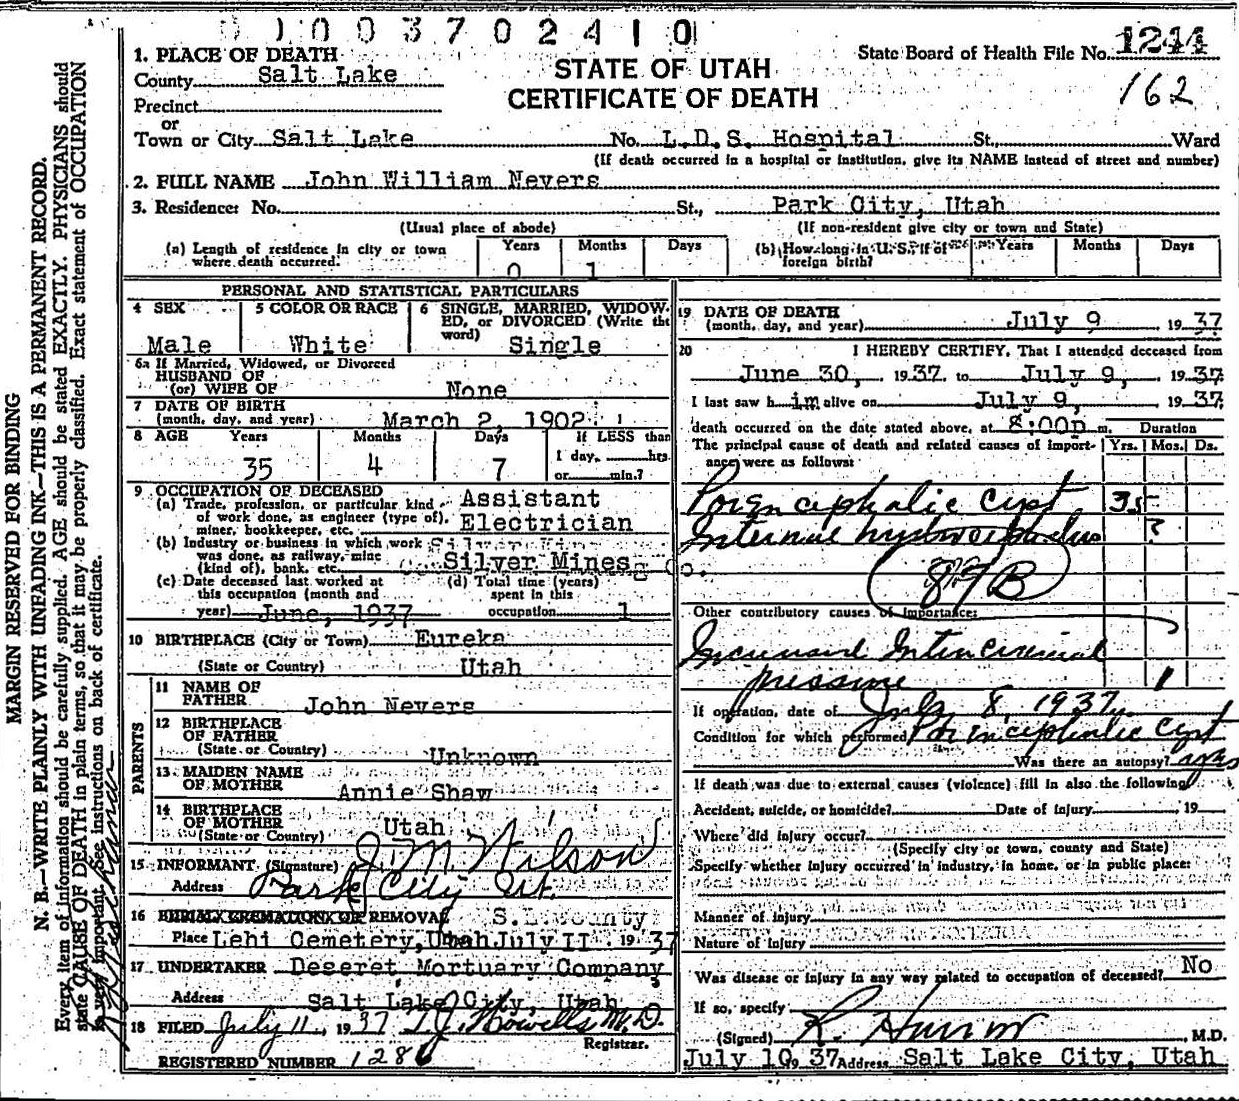 1003702410
1. PLACE OF DEATH
County Salt Lake
Precinct
or
Town or City Salt Lake No. L.D.S. Hospital St., Ward
(If death occurred in a hospital or institution, give its NAME instead of street and number)
STATE OF UTAH
CERTIFICATE OF DEATH
State Board of Health File No. 1244
162
2. FULL NAME John William Nevers
3. Residence: No. St., Park City, Utah
(Usual place of abode) (If non-resident give city or town and State)
(a) Length of residence in city or town where death occurred. Years 0 Months 1 Days
(b) How long in U. S., if of foreign birth? Years Months Days
PERSONAL AND STATISTICAL PARTICULARS
4 SEX Male
5 COLOR OR RACE White
6 SINGLE, MARRIED, WIDOWED, or DIVORCED (Write the word) Single
6a If Married, Widowed, or Divorced
HUSBAND OF
(or) WIFE OF None
7 DATE OF BIRTH
(month, day, and year) March 2, 1902
8 AGE Years 35 Months 4 Days 7 If LESS than 1 day, hrs. or min.?
9 OCCUPATION OF DECEASED
(a) Trade, profession, or particular kind of work done, as engineer (type of), miner, bookkeeper, etc. Assistant Electrician
(b) Industry or business in which work was done, as railway, mine (kind of), bank, etc. Silver Mines
(c) Date deceased last worked at this occupation (month and year) June, 1937
(d) Total time (years) spent in this occupation 1
10 BIRTHPLACE (City or Town) Eureka
(State or Country) Utah
PARENTS
11 NAME OF FATHER John Nevers
12 BIRTHPLACE OF FATHER
(State or Country) Unknown
13 MAIDEN NAME OF MOTHER Annie Shaw
14 BIRTHPLACE OF MOTHER
(State or Country) Utah
15 INFORMANT (Signature) J. M. Wilson
Address Park City Ut.
16 BURIAL, CREMATION OR REMOVAL S.L. County
Place Lehi Cemetery, Utah July II 1937
17 UNDERTAKER Deseret Mortuary Company
Address Salt Lake City, Utah
18 FILED July 11, 1937 T. J. Howells M.D.
Registrar.
REGISTERED NUMBER 1286
19 DATE OF DEATH
(month, day, and year) July 9 1937
20 I HEREBY CERTIFY, That I attended deceased from
June 30, 1937 to July 9, 1937
I last saw him alive on July 9, 1937
death occurred on the date stated above, at 8:00p m. Duration
The principal cause of death and related causes of importance were as follows: Yrs. Mos. Ds.
Porencephalic cyst 35
Internal hydrocephalus ?
Other contributory causes of importance:
Increased Intracranial
pressure 1
If operation, date of July 8, 1937
Condition for which performed Porencephalic Cyst
Was there an autopsy? yes
If death was due to external causes (violence) fill in also the following
Accident, suicide, or homicide? Date of injury 19
Where did injury occur?
(Specify city or town, county and State)
Specify whether injury occurred in industry, in home, or in public place:
Manner of Injury
Nature of Injury
Was disease or injury in any way related to occupation of deceased? No
If so, specify
(Signed) M.D.
July 10 1937 Address Salt Lake City, Utah
MARGIN RESERVED FOR BINDING
N. B.—WRITE PLAINLY WITH UNFADING INK—THIS IS A PERMANENT RECORD.
Every item of information should be carefully supplied. AGE should be stated EXACTLY. PHYSICIANS should
state CAUSE OF DEATH in plain terms, so that it may be properly classified. Exact statement of OCCUPATION
is very important. See instructions on back of certificate.